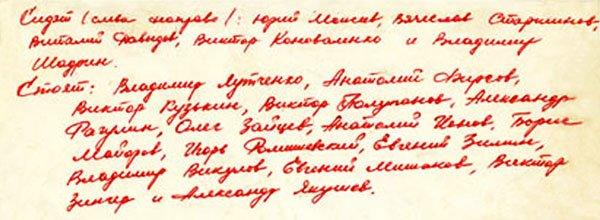 Сидят (слева направо): Юрий Моисеев, Вячеслав Старшинов,
Виталий Давыдов, Виктор Коноваленко и Владимир
Шадрин.
Стоят: Владимир Лутченко, Анатолий Фирсов,
Виктор Кузькин, Виктор Полупанов, Александр
Рагулин, Олег Зайцев, Анатолий Ионов, Борис
Майоров, Игорь Ромишевский, Евгений Зимин,
Владимир Викулов, Евгений Мишаков, Виктор
Зингер и Александр Якушев.